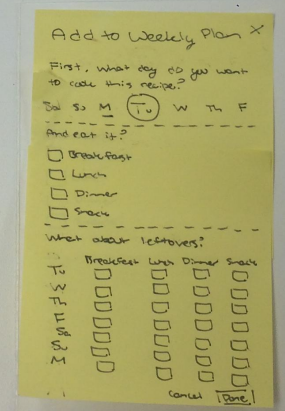 Add to Weekly Plan X
First, what day do you want
to cook this recipe?
Sa Su M Tu W Th F
And eat it?
Breakfast
Lunch
Dinner
Snack
What about leftovers?
Breakfast Lunch Dinner Snack
Tu
W
Th
F
Sa
Su
M
Cancel Done